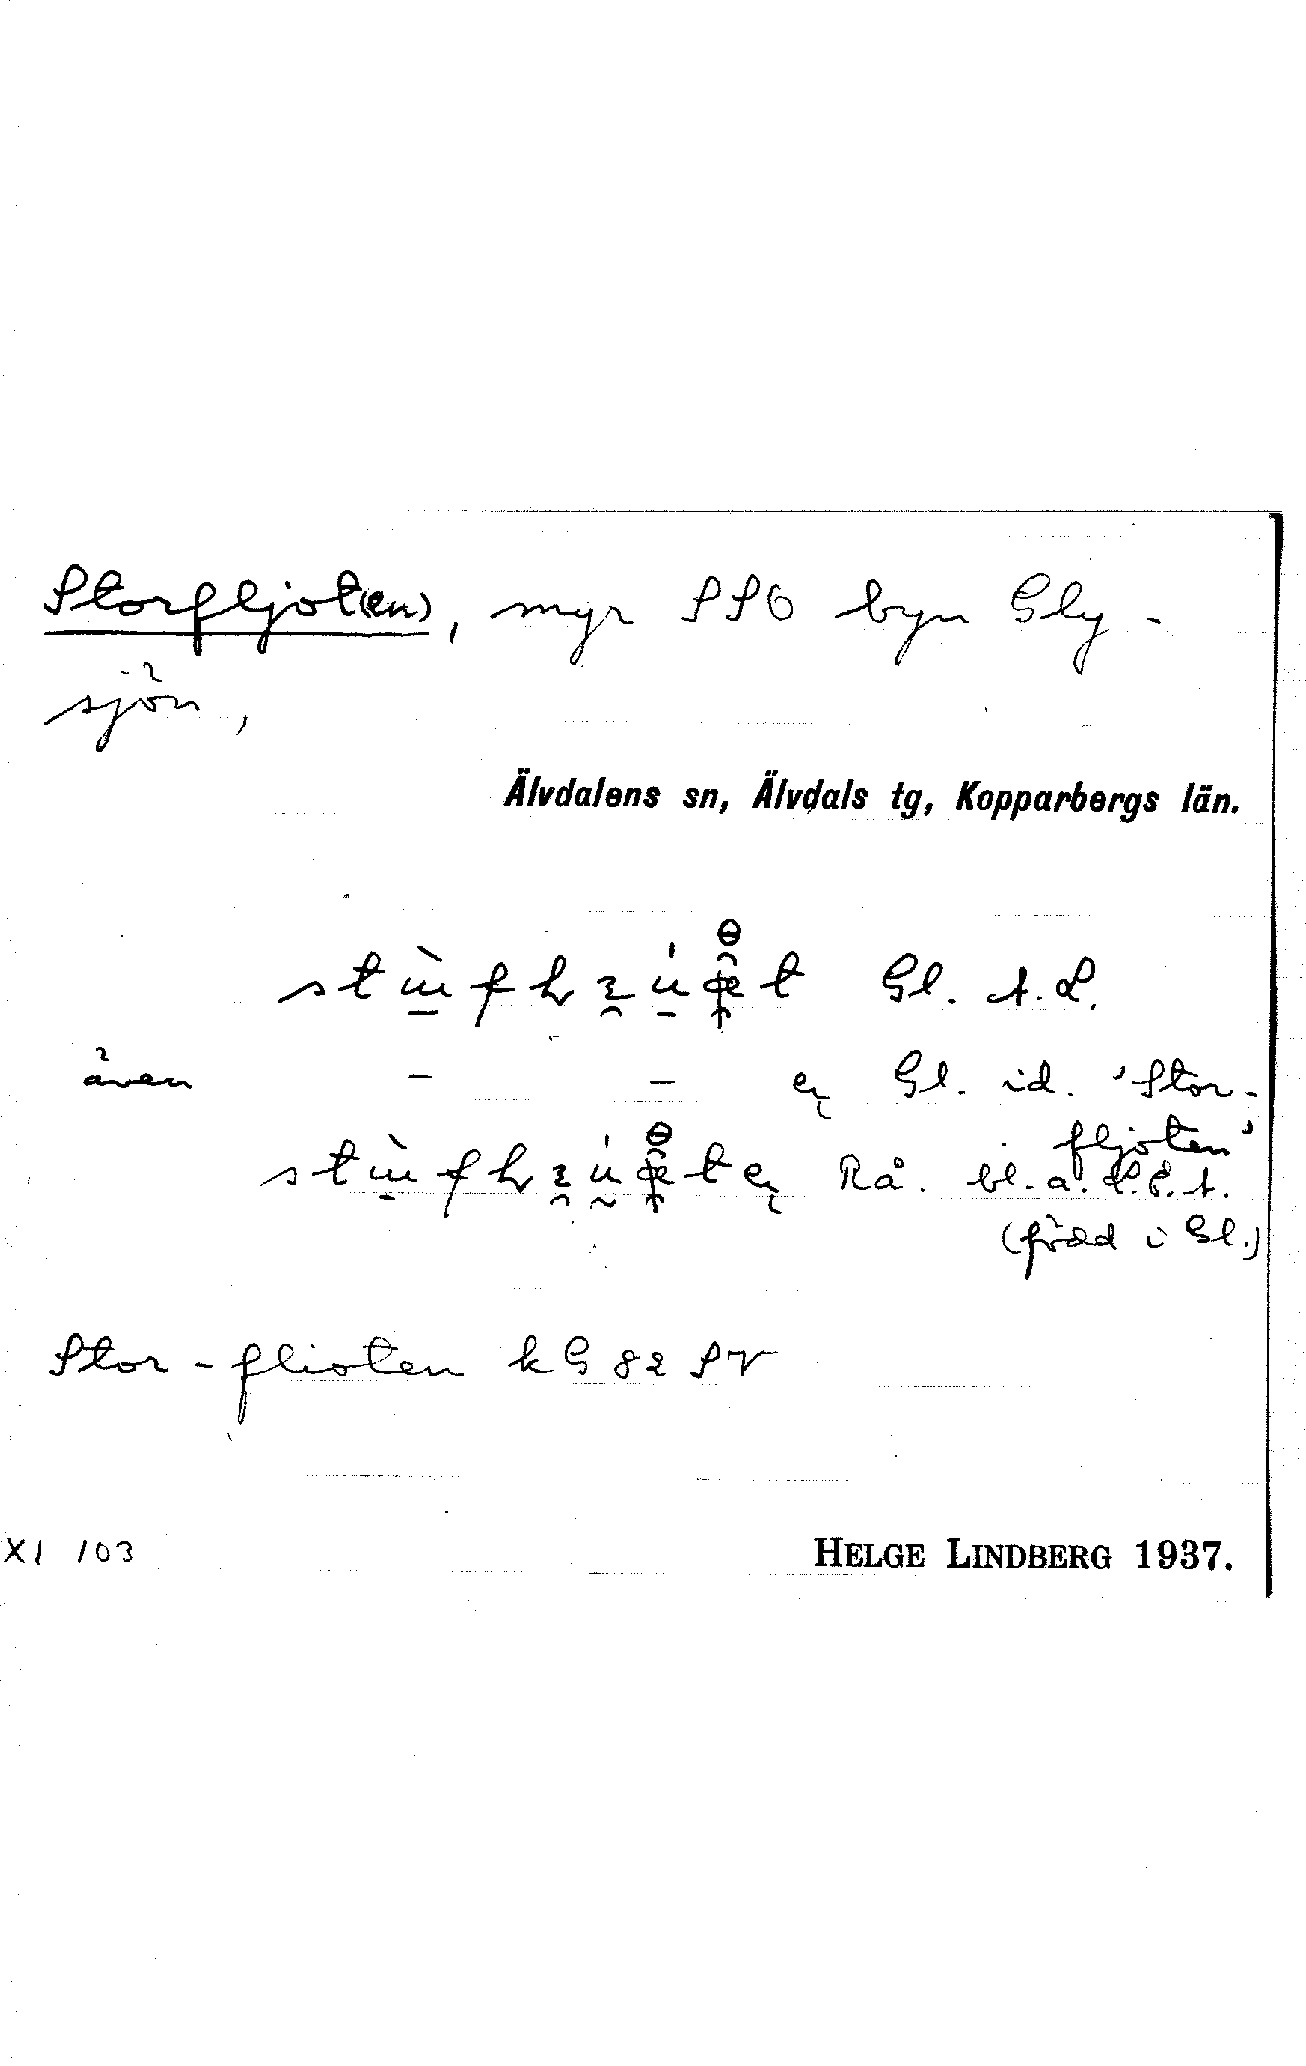 Storfljot(en), myr SSO byn Gly-
sjön,
Älvdalens sn, Älvdals tg, Kopparbergs län.
Gl. A. L.
även — — en Gl. id. 'Stor-
fljoten'
Rå. bl. a. L.E.A.
(född i Gl.)
Stor-flioten kG 82 SV
XI 103
HELGE LINDBERG 1937.